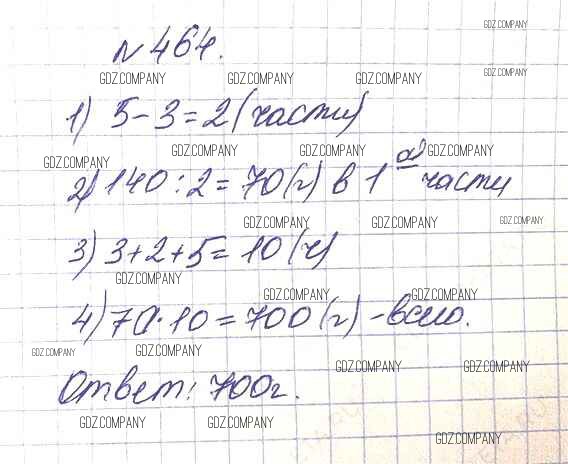 № 464.
GDZ.COMPANY
GDZ.COMPANY GDZ.COMPANY GDZ.COMPANY GDZ.COMPANY
1) 5 - 3 = 2 (части)
GDZ.COMPANY GDZ.COMPANY GDZ.COMPANY GDZ.COMPANY
2) 140 : 2 = 70 (г) в 1 ой части
GDZ.COMPANY GDZ.COMPANY GDZ.COMPANY
3) 3 + 2 + 5 = 10 (ч)
GDZ.COMPANY
GDZ.COMPANY GDZ.COMPANY
4) 70 · 10 = 700 (г) - всего.
GDZ.COMPANY GDZ.COMPANY
GDZ.COMPANY GDZ.COMPANY
Ответ: 700г.
GDZ.COMPANY GDZ.COMPANY
GDZ.COMPANY